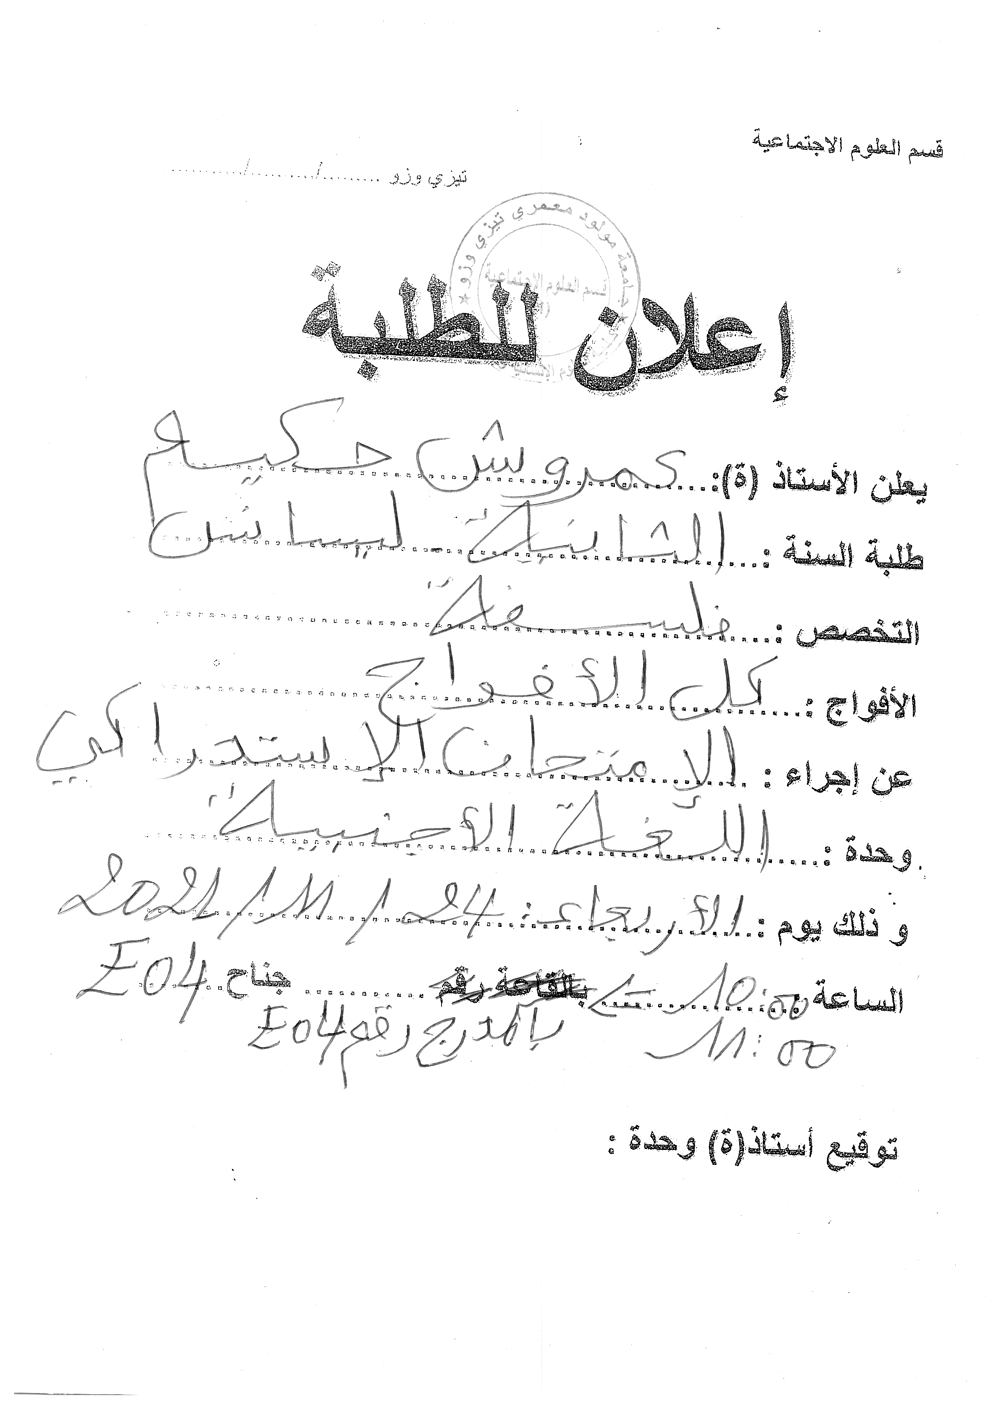 قسم العلوم الاجتماعية
تيزي وزو ........./........./.........
جامعة مولود معمري تيزي وزو
قسم العلوم الاجتماعية
إعلان للطلبة
يعلن الأستاذ (ة): عمروش حكيم
طلبة السنة : الثانية - ليسانس
التخصص : فلسفة
الأفواج : كل الأفواج
عن إجراء : الإمتحان الإستدراكي
وحدة : اللغة الأجنبية
و ذلك يوم : الأربعاء: 24 / 11 / 2021
الساعة : 10:00 بالقاعة رقم .......... جناح E04
11:00 بالمدرج رقم E04
توقيع أستاذ(ة) وحدة :